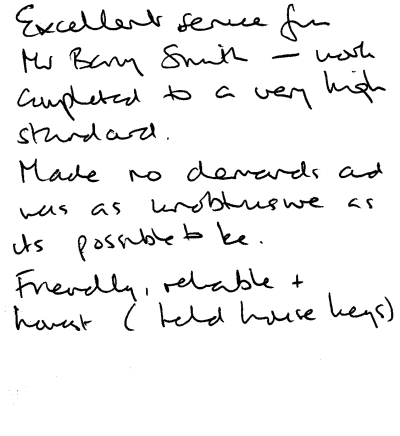 Excellent service from
Mr Barry Smith – work
completed to a very high
standard.
Made no demands and
was as unobtrusive as
its possible to be.
Friendly, reliable +
honest (held house keys)